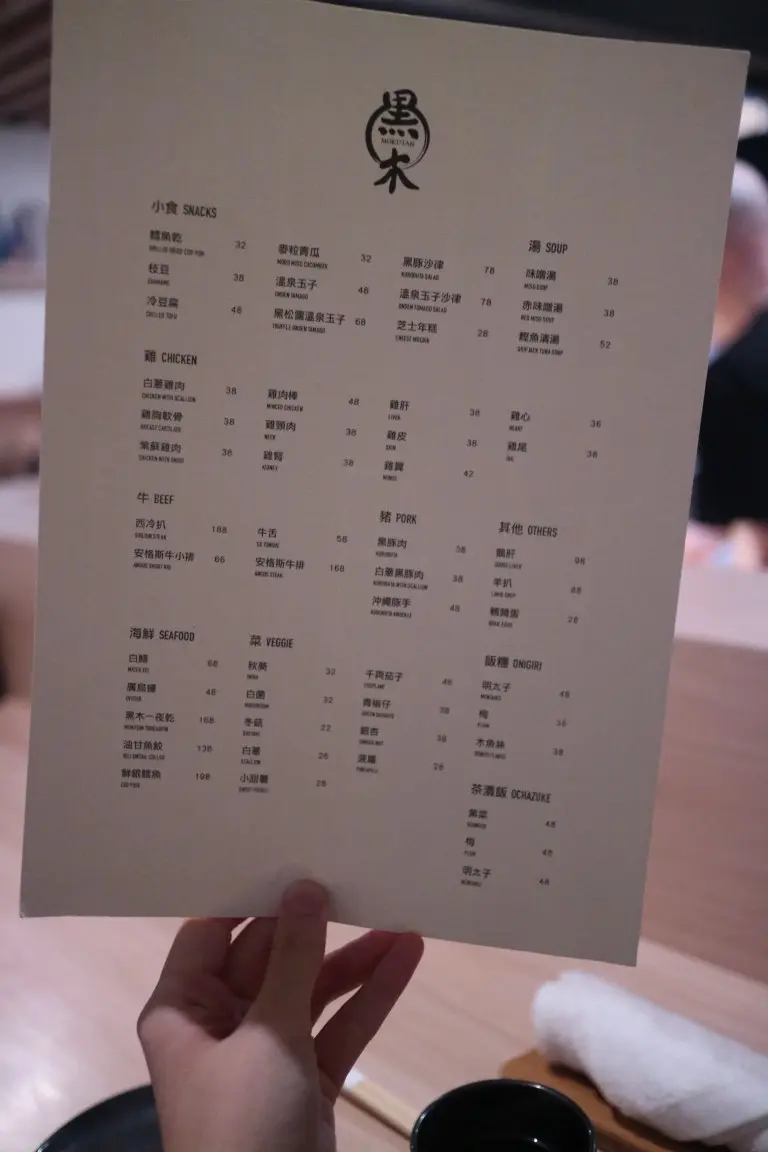 黒木
MOKUTAN
小食 SNACKS
鱈魚乾 32
枝豆 38
EDAMAME
冷豆腐 48
CHILLED TOFU
麥粒青瓜 32
MORO MISO CUCUMBER
溫泉玉子 48
ONSEN TAMAGO
黑松露溫泉玉子 68
TRUFFLE ONSEN TAMAGO
黑豚沙律 78
KUROBUTA SALAD
溫泉玉子沙律 78
ONSEN TAMAGO SALAD
芝士年糕 28
CHEESE MOCHI
湯 SOUP
味噌湯 38
MISO SOUP
赤味噌湯 38
RED MISO SOUP
鰹魚清湯 52
雞 CHICKEN
白蔥雞肉 38
CHICKEN WITH SCALLION
雞胸軟骨 38
BREAST CARTILAGE
紫蘇雞肉 38
CHICKEN WITH SHISO
雞肉棒 48
MINCED CHICKEN
雞頸肉 38
NECK
雞腎 38
KIDNEY
雞肝 38
LIVER
雞皮 38
SKIN
雞翼 42
WINGS
雞心 36
HEART
雞尾 38
TAIL
牛 BEEF
西冷扒 188
SIRLOIN STEAK
安格斯牛小排 66
ANGUS SHORT RIB
牛舌 58
OX TONGUE
安格斯牛排 168
ANGUS STEAK
豬 PORK
黑豚肉 38
KUROBUTA
白蔥黑豚肉 38
KUROBUTA WITH SCALLION
沖繩豚手 48
KUROBUTA KNUCKLE
其他 OTHERS
鵝肝 98
GOOSE LIVER
羊扒 88
LAMB CHOP
鵪鶉蛋 28
QUAIL EGGS
海鮮 SEAFOOD
白鱔 68
WATER EEL
廣島蠔 48
OYSTER
黑木一夜乾 168
油甘魚鮫 138
YELLOWTAIL COLLAR
鮮銀鱈魚 198
COD FISH
菜 VEGGIE
秋葵 32
OKRA
白菌 32
MUSHROOM
冬菇 22
SHIITAKE
白蔥 26
SCALLION
小甜薯 28
SWEET POTATO
千両茄子 48
EGGPLANT
青椒仔 38
GREEN SHISHITO
銀杏 38
GINGKO NUT
菠蘿 28
PINEAPPLE
飯糰 ONIGIRI
明太子 48
MENTAIKO
梅 38
PLUM
木魚絲 38
BONITO FLAKES
茶漬飯 OCHAZUKE
紫菜 48
SEAWEED
梅 48
PLUM
明太子 48
MENTAIKO